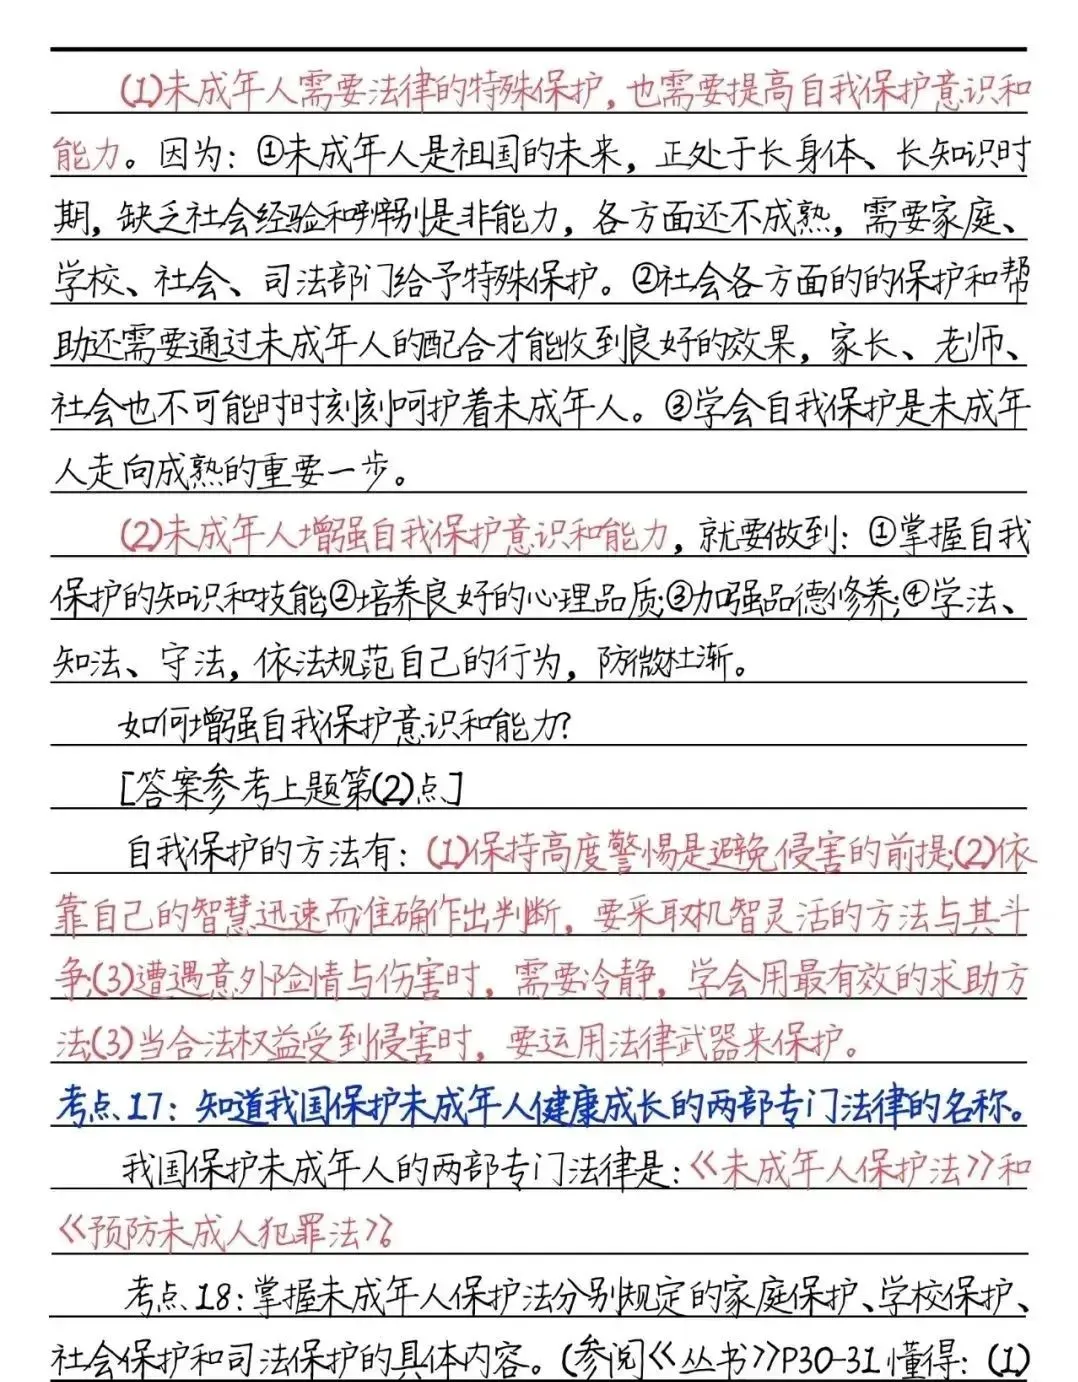 (1)未成年人需要法律的特殊保护，也需要提高自我保护意识和
能力。因为：①未成年人是祖国的未来，正处于长身体、长知识时
期，缺乏社会经验和辨别是非能力，各方面还不成熟，需要家庭、
学校、社会、司法部门给予特殊保护。②社会各方面的的保护和帮
助还需要通过未成年人的配合才能收到良好的效果，家长、老师、
社会也不可能时时刻刻呵护着未成年人。③学会自我保护是未成年
人走向成熟的重要一步。
(2)未成年人增强自我保护意识和能力，就要做到：①掌握自我
保护的知识和技能;②培养良好的心理品质;③加强品德修养;④学法、
知法、守法，依法规范自己的行为，防微杜渐。
如何增强自我保护意识和能力?
[答案参考上题第(2)点]
自我保护的方法有：(1)保持高度警惕是避免侵害的前提;(2)依
靠自己的智慧迅速而准确作出判断，要采取机智灵活的方法与其斗
争;(3)遭遇意外险情与伤害时，需要冷静，学会用最有效的求助方
法;(3)当合法权益受到侵害时，要运用法律武器来保护。
考点17：知道我国保护未成年人健康成长的两部专门法律的名称。
我国保护未成年人的两部专门法律是：《未成年人保护法》和
《预防未成人犯罪法》。
考点18：掌握未成年人保护法分别规定的家庭保护、学校保护、
社会保护和司法保护的具体内容。(参阅《丛书》P30-31懂得：(1)